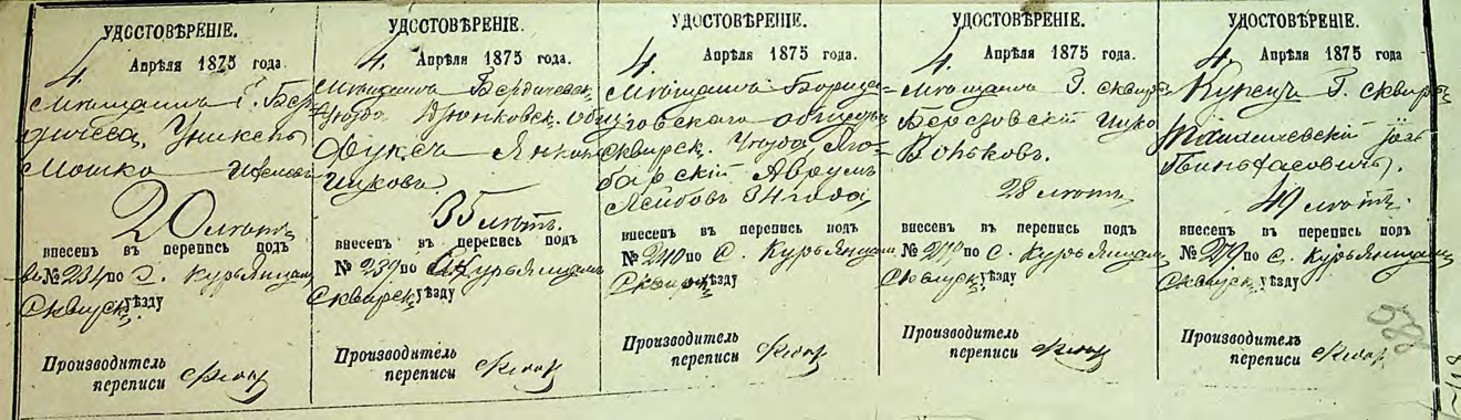 УДОСТОВѢРЕНІЕ.
4. Апрѣля 1875 года
Мѣщанинъ Г. Бер-
дичева,
Мошко
20 лѣтъ
внесенъ въ перепись подъ
№ 234 по С. Курьянцамъ
Сквирск. уѣзду
Производитель
переписи
УДОСТОВѢРЕНІЕ.
4. Апрѣля 1875 года.
Мѣщанинъ Бердичевск.
Уѣзда Дзюнковск. общ.
Фуксъ Янкель
Ицковъ
35 лѣтъ.
внесенъ въ перепись подъ
№ 239 по С. Курьянцамъ
Сквирск. уѣзду
Производитель
переписи
УДОСТОВѢРЕНІЕ.
4. Апрѣля 1875 года.
Мѣщанинъ
общества
Сквирск. Уѣзда Яго-
барскій Аврумъ
Лейбовъ 34 года
внесенъ въ перепись подъ
№ 240 по С. Курьянцамъ
Сквирск. уѣзду
Производитель
переписи
УДОСТОВѢРЕНІЕ.
4. Апрѣля 1875 года.
Мѣщанинъ Г. Сквиры
Березовскій Ицко
Вольковъ.
28 лѣтъ
внесенъ въ перепись подъ
по С. Курьянцамъ
Сквирск. уѣзду
Производитель
переписи
УДОСТОВѢРЕНІЕ.
4. Апрѣля 1875 года.
Купецъ Г. Сквиры
Пинхасовичъ.
49 лѣтъ.
внесенъ въ перепись подъ
по С. Курьянцамъ
Сквирск. уѣзду
Производитель
переписи
588